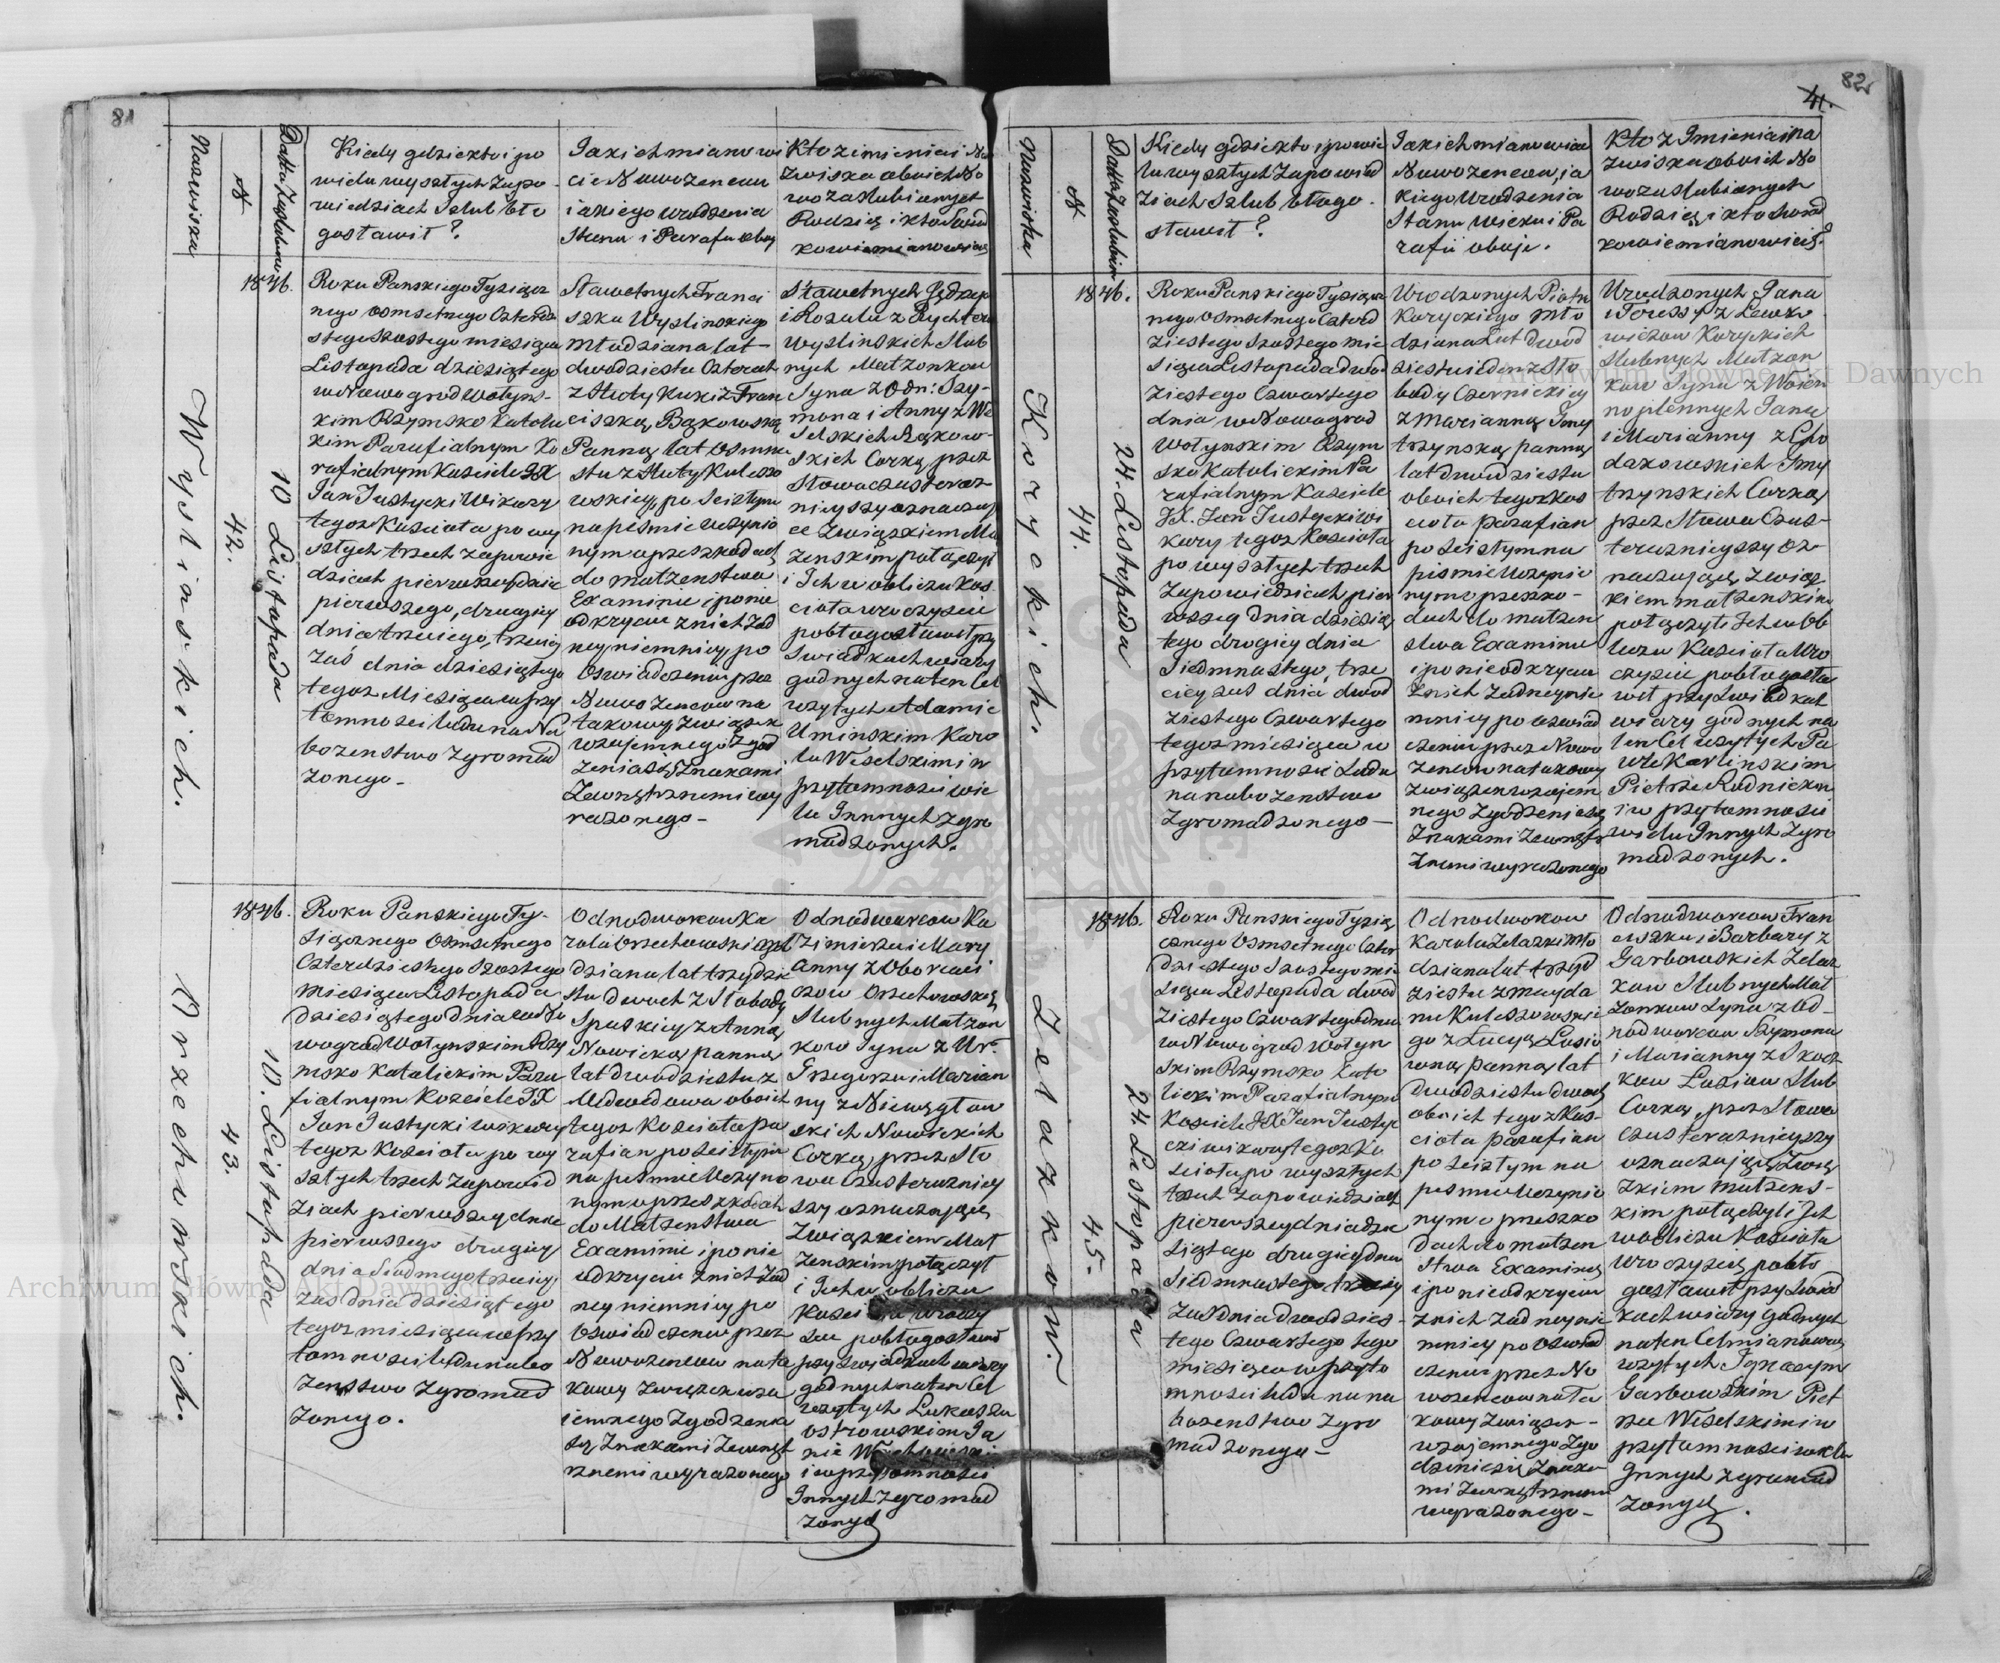 81
Nazwiska
№
Datta Zaslubin
Kiedy gdzie kto i po
wielu wyszłych Zapo-
wiedziach Szlub bło
gosławił?
Jakich mianowi
cie Nowożencow
i akiego urodzenia
Stanu i Parafii oboj
Kto z imienia i Na
zwiska oboich No
wo Zaslubionych
Rodzice i kto Swiad
kowie mianowicie
Wyslinskich.
42.
1846.
10 Listopada
Roku Panskiego Tysiącz
nego osmsetnego Czterdzie
stego Szostego miesiąca
Listopada dziesiątego
w Nowogrod Wołyns-
kim Rzymsko Katolic
kim Parafialnym Ko
rafialnym Kosciele JX
Jan Justycki Wikary
tegoz Koscioła po wy
szłych trzech zapowie
dziach pierwszey dnia
pierwszego, drugiey
dnia trzeciego, trzeciey
zaś dnia dziesiątego
tegoz Miesiąca w przy
tomnosci ludu na Na
bozenstwo zgromad
zonego-
Sławetnych Franci
szka Wyslinskiego
Młodziana lat-
dwadziestu Czterech
z Huty Kuki z Fran
ciszką Bąkowską
Panną lat Osmna
stu z Huty Kulesso
wskiey, po Scisłym
na pismie uczynio
nym o przeszkodach
do małzenstwa
Examinie i ponie
odkryciu z nich zad
ney niemniey po
Oswiadczeniu przez
Nowo Zencow na
takowy zwiazek
wzajemnego Zgod
zenia się Znakami
Zewnętrznemi wy
razonego-
Sławetnych Jędrzeja
i Rozalii z Rychterow
Wyslinskich Slub
nych Małzonkow
Syna z Odn: Szy-
mona i Anny z We
selskich Bąkow-
skich Corką przez
Słowa czas teraz-
nieyszy oznaczają
ce Związkiem Mał
zenskim połączył
i Ich w obliczu Kos
cioła uroczyscie
pobłogosławił przy
Swiadkach wiary
godnych na ten Cel
uzytych Adamie
Uminskim Karo
lu Weselskim i w
przytomnosci wie
lu Innnych zgro
madzonych.
Orzechowskich.
43.
1846.
10. Listopada
Roku Panskiego Ty-
siącznego Osmsetnego
Czterdziestego Szostego
Miesiąca Listopada
dziesiątego dnia w No
wogrod Wołynskim Rzy
msko Katolickim Para
fialnym Kosciele JX
Jan Justycki wikary
tegoz Kosciola po wy
szłych trzech Zapowied
ziach pierwszey dnia
pierwszego drugiey
dnia Siodmego trzeciey
zas dnia dziesiątego
tegoz miesiąca w przy
tomnosci ludu na bo
zenstwo zgromad
zonego.
Odnodworcow Ka
rola Orzechowskiego Mło
dziana lat trzydzie
stu dwoch z Słobody
Spaskiey z Anną
Nowicką panną
lat dwodziestu z
Medwedowa oboich
tegoz Kosciola pa
rafian po Scisłym
na pismie Uczynio
nym o przeszkodach
do Małzenstwa
Examinie i ponie
odkryciu z nich Zad
ney niemniey po
Oswiadczeniu przez
Nowozencow na ta
kowy zwiazek wza
iemnego Zgodzenia
się Znakami Zewnęt
rznemi wyrazonego
Odnodworcow Ka
zimierza i Mary
anny z Oborcwi
czow Orzechowskich
Slubnych Małzon
kow Syna z Ur:
Grzegorza i Marian
ny z Niewęgłow
skich Nowickich
Corką, przez Sło
wa Czas terazniey
szy oznaczające
Związkiem Mał
zenskim połączył
i Ich w obliczu
Kosciola uroczy
scie pobłogosławił
przy Swiadkach wiary
godnych na ten Cel
uzytych Lukaszu
Ostrowskim Ja
nie
i w przytomnosci
Innych zgromad
zonych
82
41.
Nazwiska
№
Datta Zaslubin
Kiedy gdzie kto i po wie
lu wyszłych Zapowied
ziach Szlub błogo.
sławił?
Jakich mianowicie
Nowozencow, ja
kiego Urodzenia
Stanu Wieku i Pa
rafii oboje.
Kto z Imienia i Na
zwiska oboich No
wozaslubionych
Rodzice i kto Swiad
kowie mianowicie?
Koryckich.
44.
1846.
24. Listopada
Roku Panskiego Tysiącz
nego Osmsetnego Czterd
ziestego Szostego mie
siąca Listopada dwod
ziestego Czwartego
dnia w Nowogrod
Wołynskim Rzym
sko Katolickim Pa
rafialnym Kosciele
JX. Jan Justycki Wi
kary tegoz Kosciola
po wyszłych trzech
Zapowiedziach pier
wszey dnia dziesią
tego drugiey dnia
Siedmnastego, trze
ciey zas dnia dwod
ziestego Czwartego
tegoz miesiąca w
przytomnosci Ludu
na nabozenstwo
zgromadzonego-
Urodzonych Piotra
Koryckiego Mło
dziana Lat dwod
ziestu jeden z Sło
body Czernickiey
z Marianną Zmy
trzynską panną
lat dwudziestu
oboich tegoz Kos
ciola parafian
po Scisłym na
pismie Uczynio
nym o przeszko-
dach do małzen
stwa Examinie
i ponieodkryciu
z nich Zadney nie
mniey po oswiad
czeniu przez Nowo
zencow na takowy
związek wzajem
nego Zgodzenia się
Znakami Zewnętr
znemi wyrazonego
Urodzonych Jana
i Teressy z Lewko
wiczow Koryckich
Slubnych Małzon
kow Syna z Wolen
no plennych Jana
i Marianny z Cho
dakowskich Zmy
trzynskich Corką
przez Słowa Czas-
teraznieyszy oz-
naczające Związ
kiem małzenskim
połączył i Ich w ob
liczu Kosciola Uro
czyscie pobłogosła
wił przy Swiadkach
wiary godnych na
ten Cel uzytych Pa
wle Karlinskim
Pietrze Rudnickim
i w przytomnosci
wielu Innych Zgro
madzonych.
Zelazkow.
45.
1846.
24. Listopada
Roku Panskiego Tysią
cznego Osmsetnego Czter
dziestego Szostego mie
siąca Listopada dwod
ziestego Czwartego dnia
w Nowogrod Wołyn
skim Rzymsko Kato
lickim Parafialnym
Kosciele JX Jan Justyc
ki wikary tegoz Ko
sciola po wyszłych
trzech Zapowiedziach
pierwszey dnia dzie
siątego drugiey dnia
Siedmnastego trzeciey
zas dnia dwodzies-
tego Czwartego tego
miesiąca w przyto
mnosci ludu na na
bozenstwo zgro
madzonego-
Odnodworcow
Karola Zelazki Mło
dziana lat trzyd
ziestu z Mayda
nu Kuleszowskie
go z Łucyą Lasio
wną panną lat
dwudziestu dwoch
oboich tegoz Kos-
ciola parafian
po scisłym na
pismie Uczynio
nym o przeszko
dach do małzen
stwa Examinie
i ponieodkryciu
z nich zadney nie
mniey po Oswiad
czeniu przez No
wozencow na ta
kowy Związek-
wzajemnego Zgo
dzenie się Znaka
mi Zewnętrznemi
wyrazonego-
Odnodworcow Fran
ciszka i Barbary z
Garbowskich Zelaz
kow Slubnych Mał
zonkow Syna z Od-
nodworcow Szymona
i Marianny z Skocz
kow Lasiow Slub
Corką, przez Słowa
czas teraznieyszy
oznaczające Zwią
zkiem małzens-
kim połączył i Ich
w obliczu Kosciola
uroczyscie pobło
gosławił przy Swiad
kach wiary godnych
na ten Cel mianowicie
uzytych Ignacym
Garbowskim Piet
rze Weselskim i w
przytomnosci wielu
Innych zgromad
zonych.
Archiwum Główne Akt Dawnych
Archiwum Główne Akt Dawnych